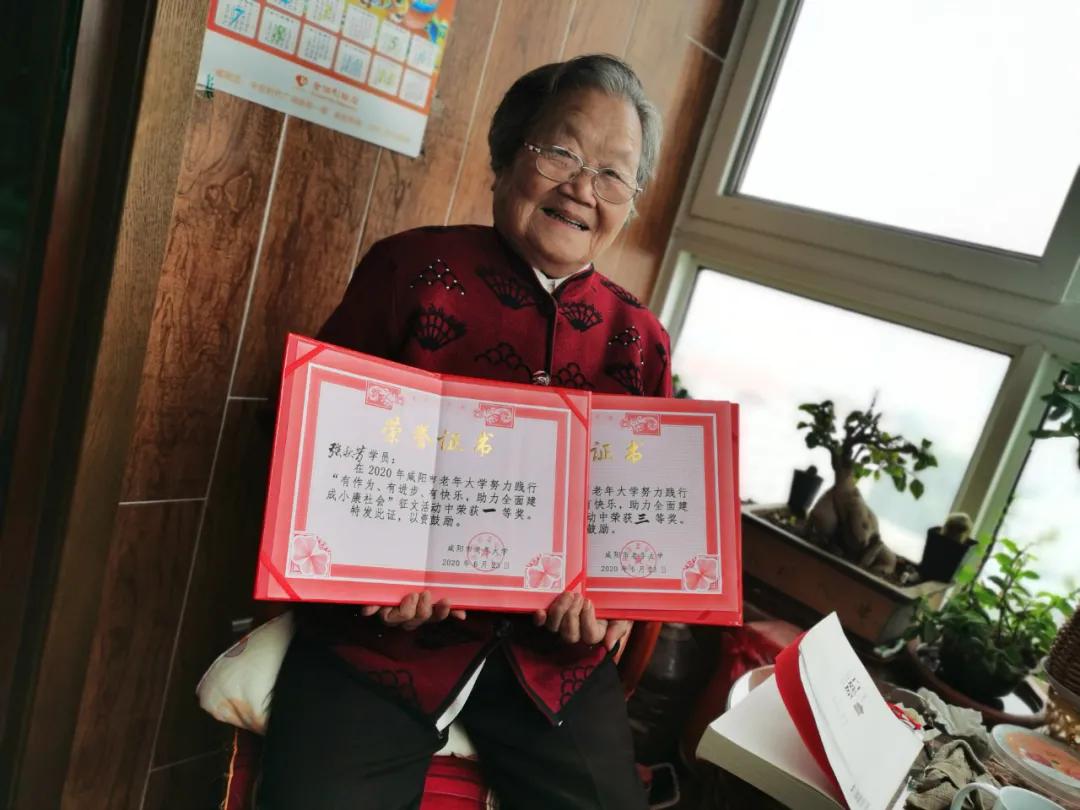 荣誉证书
张秋芳学员：
在2020年咸阳市老年大学努力践行
“有作为、有进步、有快乐，助力全面建
成小康社会”征文活动中荣获一等奖。
特发此证，以资鼓励。
咸阳市老年大学
2020年6月23日
证书
老年大学努力践行
有快乐，助力全面建
动中荣获三等奖。
鼓励。
咸阳市老年大学
2020年6月23日
7
8
5